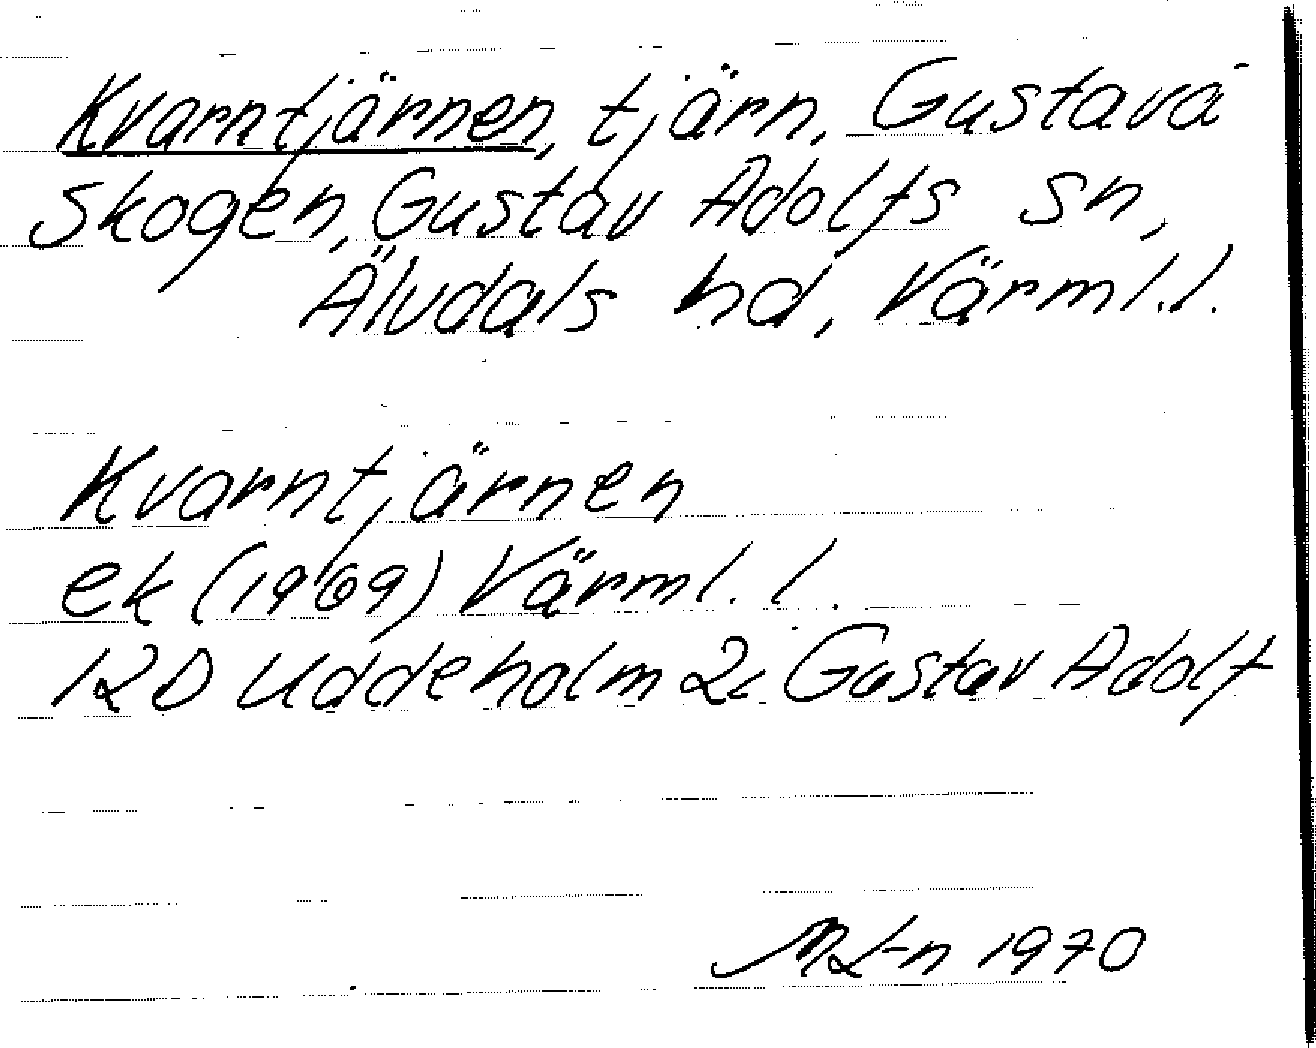 Kvarntjärnen, tjärn, Gustava
Skogen, Gustav Adolfs sn,
Älvdals hd, Värml.l.
Kvarntjärnen
ek (1969) Värml. l.
12D Uddeholm 2c Gustav Adolf
ML-n 1970